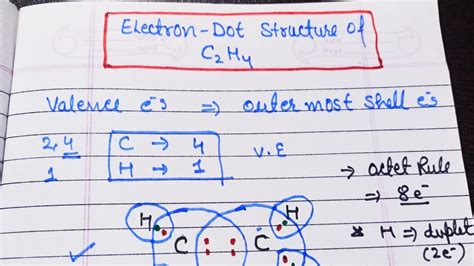 Electron-Dot Structure of
C₂H₄
Valence e⁻s ⇒ outermost shell e⁻s
2,4 C → 4 V.E
1 H → 1
→ octet Rule
⇒ 8e⁻
* H ⇒ duplet
(2e⁻)
H H
C C